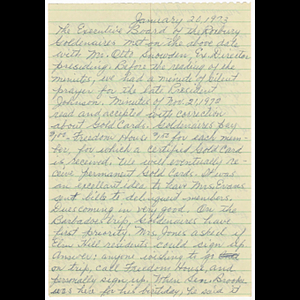 January 20, 1973
The Executive Board of the Roxbury
Goldenaires met on the above date
with Mr. Otto Snowden, Ex. Director
presiding. Before the reading of the
minutes, we had a minute of silent
prayer for the late President
Johnson. Minutes of Nov. 21, 1972
read and accepted with correction
about Gold Cards. Goldenaires pay
Freedom House for each mem-
ber, for which a certified Gold Card
is received. We will eventually re-
ceive permanent Gold Cards. It was
an excellent idea to have Mrs. Evans
sent bills to delinquent members.
Dues coming in very good. On the
Barbados Trip, Goldenaires have
first priority. Mrs. Jones asked if
Elm Hill residents could sign up.
Answer: anyone wishing to go
on trip, call Freedom House, and
personally sign up. When Senr. Brooke
was here for his birthday, he said it